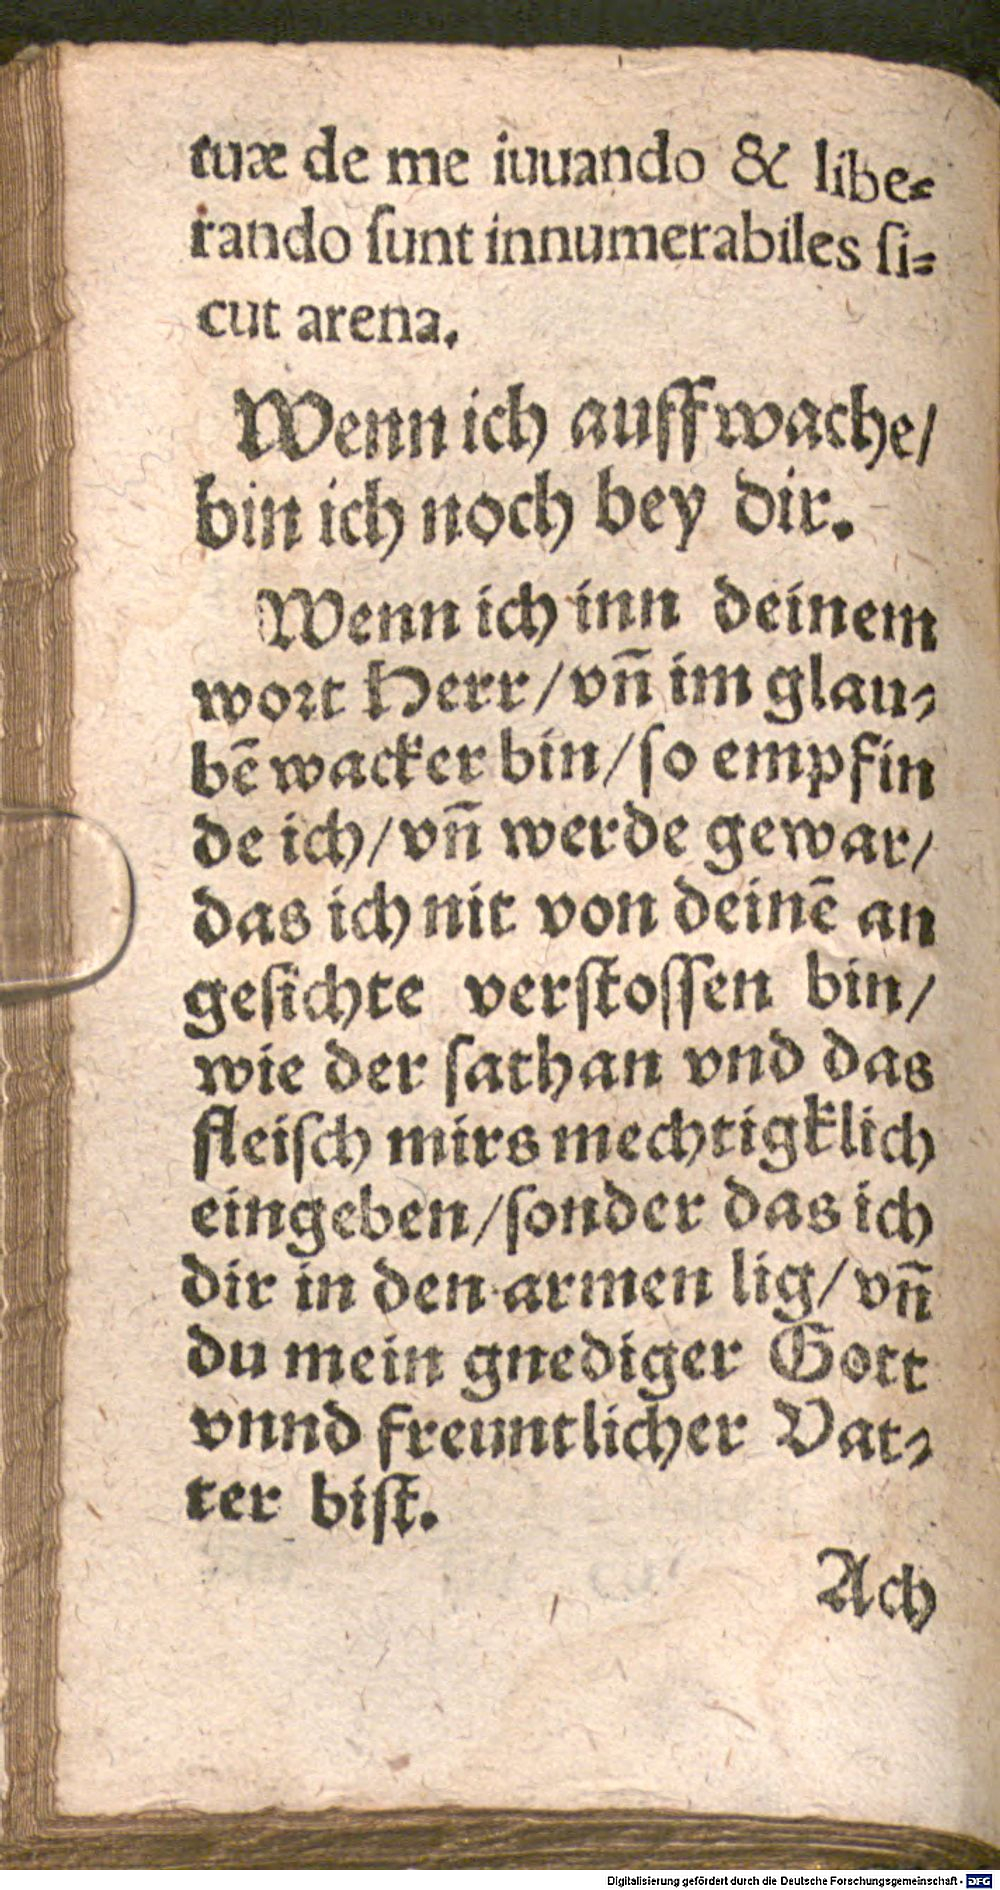 tuæ de me iuuando & libe⸗
rando ſunt innumerabiles ſi⸗
cut arena.
Wenn ich auffwache/
bin ich noch bey dir.
Wenn ich inn deinem
wort Herr/vñ im glau⸗
bē wacker bin/ſo empfin
de ich/vñ werde gewar/
das ich nit von deinē an
geſichte verſtoſſen bin/
wie der ſathan vnd das
fleiſch mirs mechtigklich
eingeben/ſonder das ich
dir in den armen lig/vñ
du mein gnediger Gott
vnnd freuntlicher Vat⸗
ter biſt.
Ach
Digitalisierung gefördert durch die Deutsche Forschungsgemeinschaft - DFG